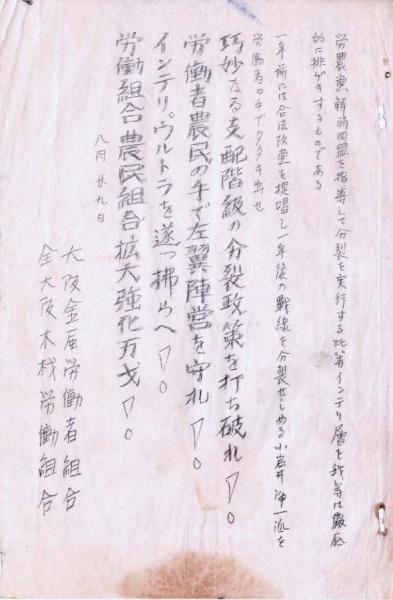 労農党解消同盟を指導して分裂を実行する此等インテリ層を我等は徹底
的に排ゲキするものである
一年前には合法政党を提唱し一年後の戦線を分裂せしめる小岩井浄一派を
労働者の手でタタキ出せ
巧妙なる支配階級の分裂政策を打ち破れ!。
労働者農民の手で左翼陣営を守れ!。
インテリ。ウルトラを逐つ拂らへ!。
労働組合農民組合拡大強化万才!。
八月廿九日
大阪金属労働者組合
全大阪木材労働組合